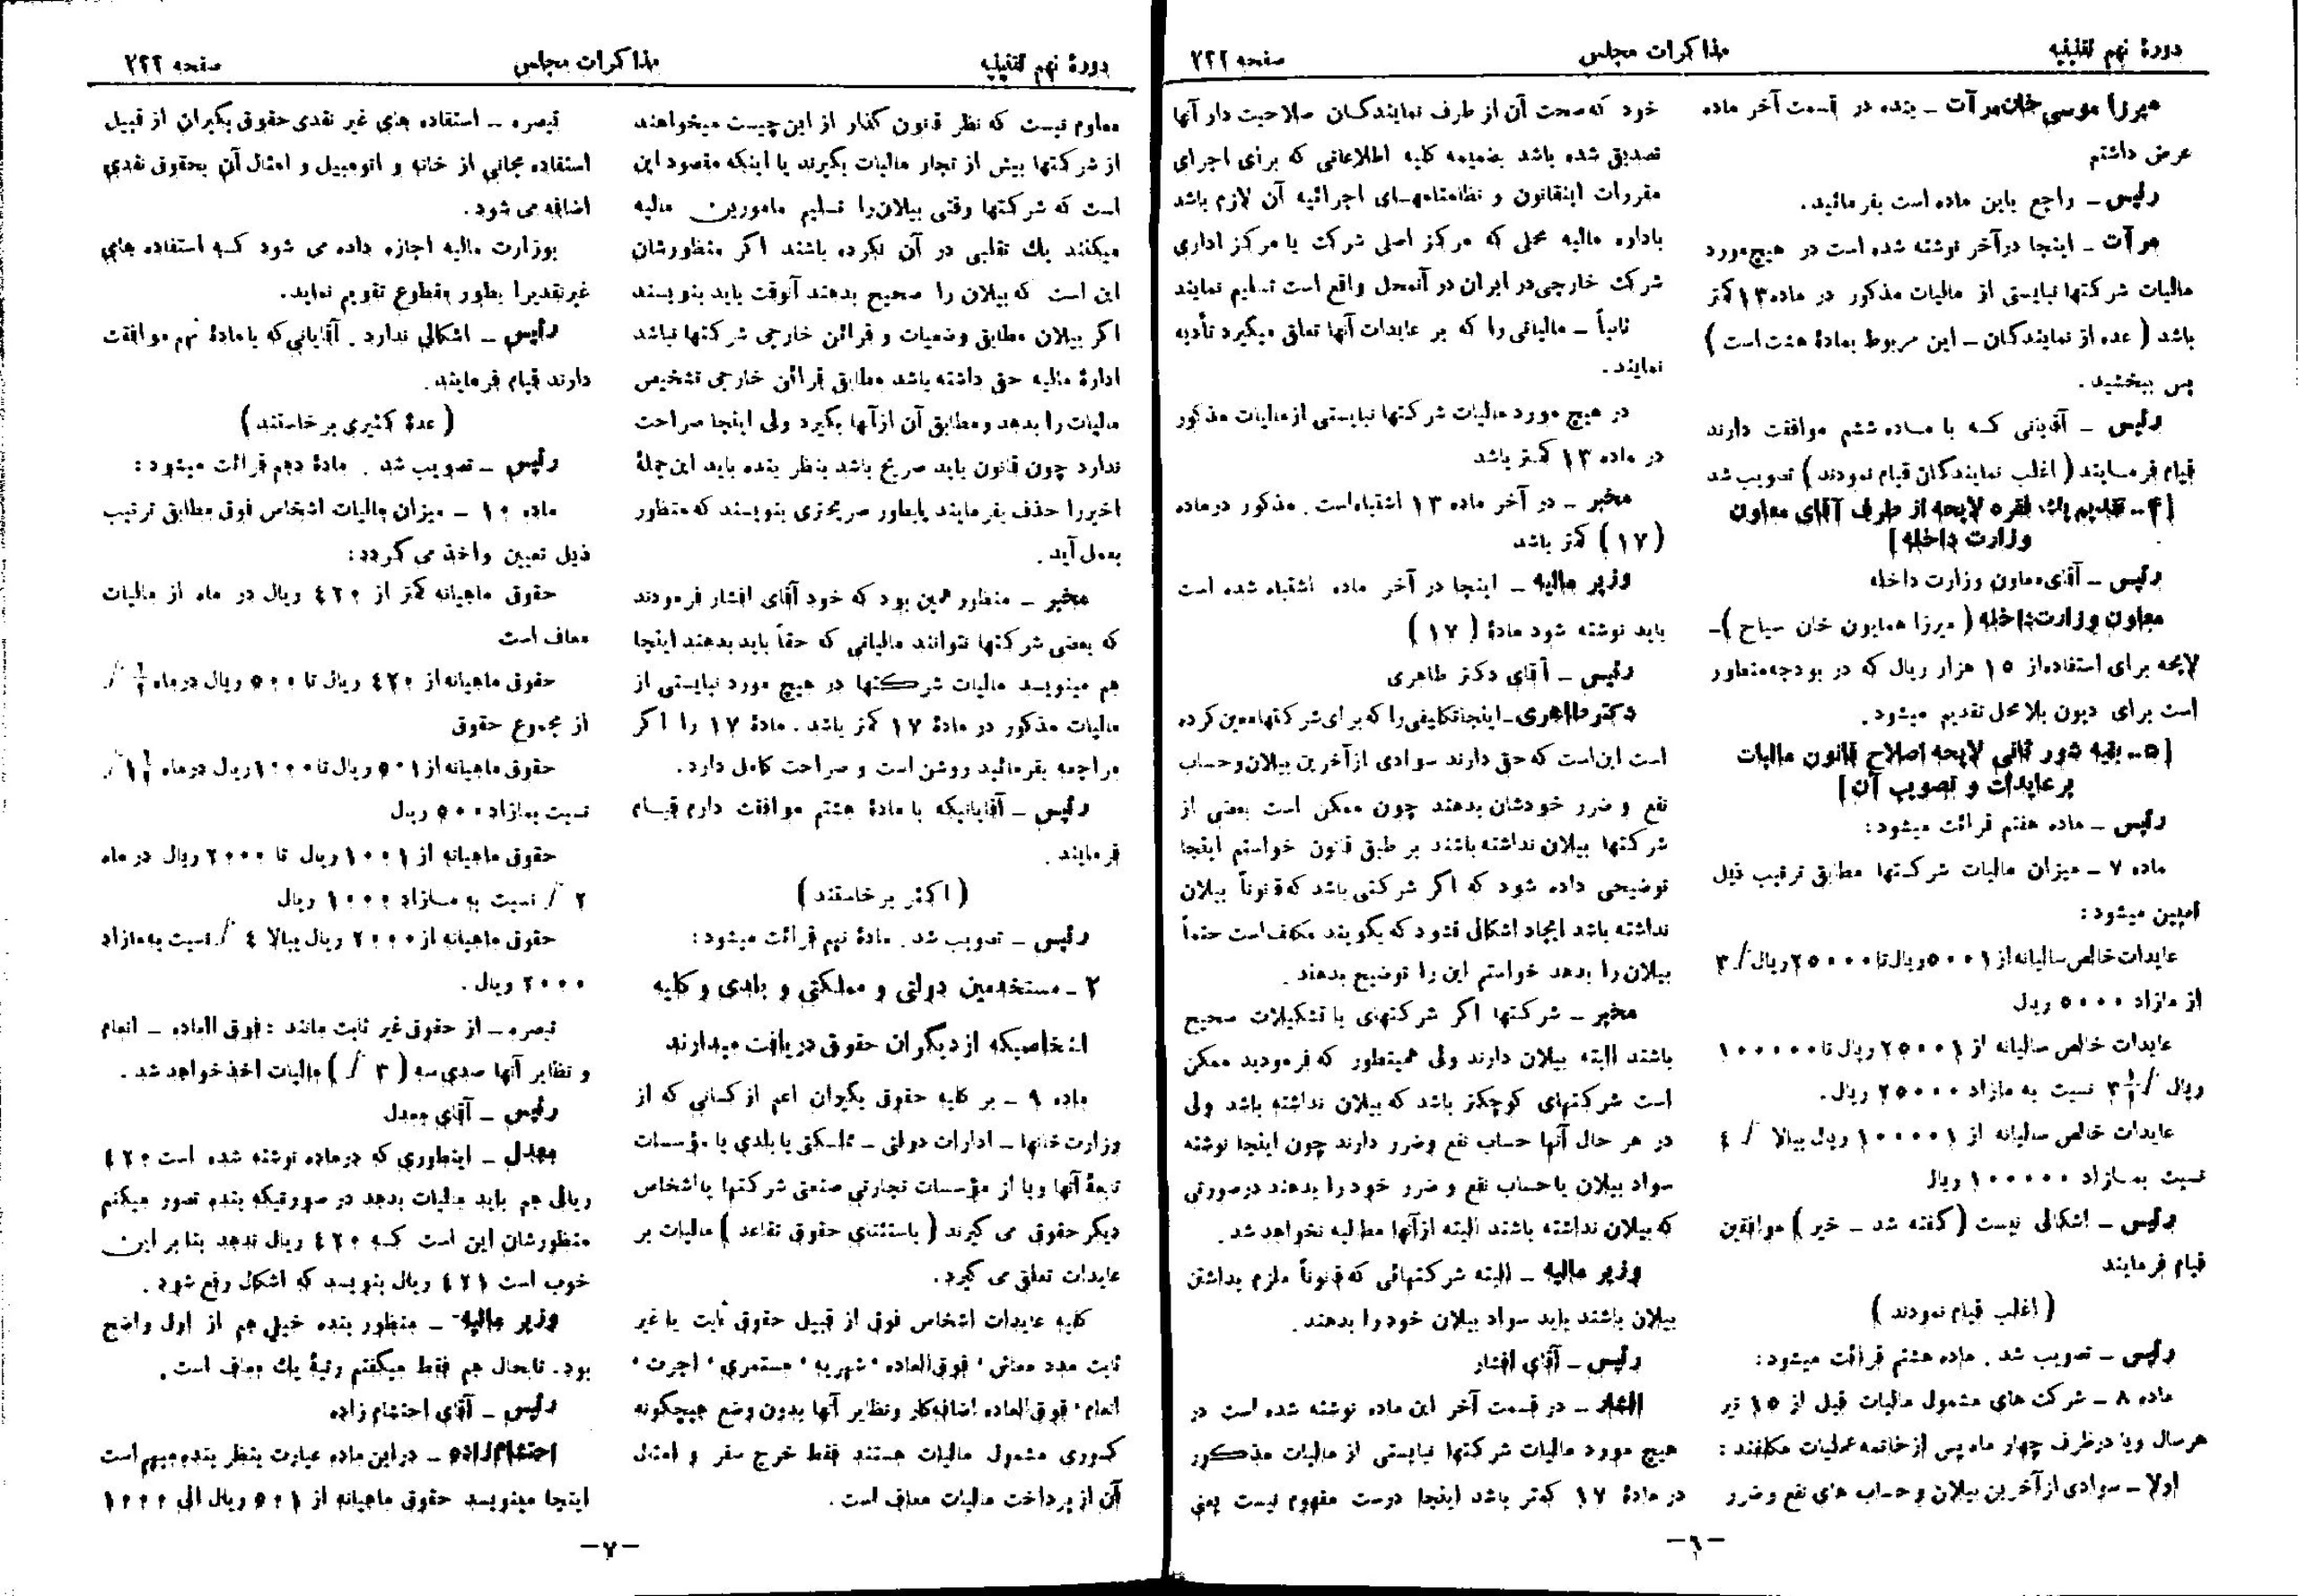 دورهٔ نهم تقنینیه
مذاکرات مجلس
صفحه ۷۲۲
میرزا موسی خان مرآت ـ بنده در قسمت آخر ماده
عرض داشتم
رئیس ـ راجع باین ماده است بفرمائید.
مرآت ـ اینجا در آخر نوشته شده است در هیچ مورد
مالیات شرکتها نبایستی از مالیات مذکور در ماده ۱۳ کمتر
باشد ( عده از نمایندگان ـ این مربوط بمادهٔ هشت است )
پس ببخشید .
رئیس ـ آقایانی که با ماده ششم موافقت دارند
قیام فرمایند ( اغلب نمایندگان قیام نمودند ) تصویب شد
[۴ـ تقدیم یك فقره لایحه از طرف آقای معاون
وزارت داخله]
رئیس ـ آقای معاون وزارت داخله
معاون وزارت داخله ( میرزا همایون خان سیاح )ـ
لایحه برای استفاده از ۱۵ هزار ریال که در بودجه منظور
است برای دیون بلامحل تقدیم میشود.
[۵ـ بقیه شور ثانی لایحه اصلاح قانون مالیات
بر عایدات و تصویب آن]
رئیس ـ ماده هفتم قرائت میشود:
ماده ۷ ـ میزان مالیات شرکتها مطابق ترتیب ذیل
تعیین میشود:
عایدات خالص سالیانه از ۵۰۰۱ ریال تا ۲۵۰۰۰ ریال ٪ ۳
از مازاد ۵۰۰۰ ریال
عایدات خالص سالیانه از ۲۵۰۰۱ ریال تا ۱۰۰۰۰۰
ریال ٪ ۳½ نسبت به مازاد ۲۵۰۰۰ ریال.
عایدات خالص سالیانه از ۱۰۰۰۰۱ ریال ببالا ٪ ٤
نسبت به مازاد ۱۰۰۰۰۰ ریال
رئیس ـ اشکالی نیست (گفته شد ـ خیر ) موافقین
قیام فرمایند
( اغلب قیام نمودند )
رئیس ـ تصویب شد . ماده هشتم قرائت میشود:
ماده ۸ ـ شرکت های مشمول مالیات قبل از ۱۵ تیر
هر سال و یا در ظرف چهار ماه پس از خاتمه عملیات مکلفند :
اولا ـ سوادی از آخرین بیلان و حساب های نفع و ضرر
خود که صحت آن از طرف نمایندگان صلاحیت دار آنها
تصدیق شده باشد بضمیمه کلیه اطلاعاتی که برای اجرای
مقررات اینقانون و نظامنامهای اجرائیه آن لازم باشد
باداره مالیه محلی که مرکز اصلی شرکت یا مرکز اداری
شرکت خارجی در ایران در آنمحل واقع است تسلیم نمایند
ثانیاً ـ مالیاتی را که بر عایدات آنها تعلق میگیرد تأدیه
نمایند.
در هیچ مورد مالیات شرکتها نبایستی از مالیات مذکور
در ماده ۱۳ کمتر باشد
مخبر ـ در آخر ماده ۱۳ اشتباه است . مذکور در ماده
( ۱۷ ) کمتر باشد
وزیر مالیه ـ اینجا در آخر ماده اشتباه شده است
باید نوشته شود مادهٔ ( ۱۷ )
رئیس ـ آقای دکتر طاهری
دکتر طاهری ـ اینجا تکلیفی را که برای شرکتها معین کرده
است این است که حق دارند سوادی از آخرین بیلان و حساب
نفع و ضرر خودشان بدهند چون ممکن است بعضی از
شرکتها بیلان نداشته باشند بر طبق قانون خواستم اینجا
توضیحی داده شود که اگر شرکتی باشد که قانوناً بیلان
نداشته باشد ایجاد اشکالی نشود که بگویند مکلف است حتماً
بیلان را بدهد خواستم این را توضیح بدهند .
مخبر ـ شرکتها اگر شرکتهای با تشکیلات صحیح
باشند البته بیلان دارند ولی همینطور که فرمودید ممکن
است شرکتهای کوچکتر باشد که بیلان نداشته باشد ولی
در هر حال آنها حساب نفع و ضرر دارند چون اینجا نوشته
سواد بیلان یا حساب نفع و ضرر خود را بدهند در صورتی
که بیلان نداشته باشند البته از آنها مطالبه نخواهد شد .
وزیر مالیه ـ البته شرکتهائی که قانوناً ملزم بداشتن
بیلان باشند باید سواد بیلان خود را بدهند.
رئیس ـ آقای افشار
افشار ـ در قسمت آخر این ماده نوشته شده است در
هیچ مورد مالیات شرکتها نبایستی از مالیات مذکور
در مادهٔ ۱۷ کمتر باشد اینجا درست مفهوم نیست یعنی
ـ ٦ ـ
دورهٔ نهم تقنینیه
مذاکرات مجلس
صفحه ۷۲۲
معلوم نیست که نظر قانون گذار از این چیست میخواهند
از شرکتها بیش از تجار مالیات بگیرند یا اینکه مقصود این
است که شرکتها وقتی بیلان را تسلیم مامورین مالیه
میکنند یك تقلبی در آن نکرده باشند اگر منظورشان
این است که بیلان را صحیح بدهند آنوقت باید بنویسند
اگر بیلان مطابق وضعیات و قرائن خارجی شرکتها نباشد
ادارهٔ مالیه حق داشته باشد مطابق قرائن خارجی تشخیص
مالیات را بدهد و مطابق آن از آنها بگیرد ولی اینجا صراحت
ندارد چون قانون باید صریح باشد بنظر بنده باید این جملهٔ
اخیر را حذف بفرمایند یا بطور صریحتری بنویسند که منظور
بعمل آید.
مخبر ـ منظور همین بود که خود آقای افشار فرمودند
که بعضی شرکتها نتوانند مالیاتی که حقاً باید بدهند اینجا
هم مینویسد مالیات شرکتها در هیچ مورد نبایستی از
مالیات مذکور در مادهٔ ۱۷ کمتر باشد. مادهٔ ۱۷ را اگر
مراجعه بفرمائید روشن است و صراحت کامل دارد.
رئیس ـ آقایانیکه با مادهٔ هشتم موافقت دارم قیام
فرمایند .
( اکثر برخاستند )
رئیس ـ تصویب شد . مادهٔ نهم قرائت میشود:
۲ ـ مستخدمین دولتی و مملکتی و بلدی و کلیه
اشخاصیکه از دیگران حقوق دریافت میدارند
ماده ۹ ـ بر کلیه حقوق بگیران اعم از کسانی که از
وزارت خانها ـ ادارات دولتی ـ مملکتی یا بلدی یا مؤسسات
تابعهٔ آنها و یا از مؤسسات تجارتی صنعتی شرکتها یا اشخاص
دیگر حقوق می گیرند ( باستثنای حقوق تقاعد ) مالیات بر
عایدات تعلق می گیرد.
کلیه عایدات اشخاص فوق از قبیل حقوق ثابت یا غیر
ثابت مدد معاش، فوق العاده، شهریه، مستمری، اجرت،
انعام، فوق العاده اضافه کار و نظایر آنها بدون وضع هیچگونه
کسوری مشمول مالیات هستند فقط خرج سفر و امثال
آن از پرداخت مالیات معاف است.
تبصره ـ استفاده های غیر نقدی حقوق بگیران از قبیل
استفاده مجانی از خانه و اتومبیل و امثال آن بحقوق نقدی
اضافه می شود.
بوزارت مالیه اجازه داده می شود که استفاده های
غیرنقدیرا بطور مقطوع تقویم نماید.
رئیس ـ اشکالی ندارد . آقایانی که با مادهٔ نهم موافقت
دارند قیام فرمایند.
( عدهٔ کثیری برخاستند )
رئیس ـ تصویب شد . مادهٔ دهم قرائت میشود :
ماده ۱۰ ـ میزان مالیات اشخاص فوق مطابق ترتیب
ذیل تعیین و اخذ می گردد:
حقوق ماهیانه کمتر از ٤۲۰ ریال در ماه از مالیات
معاف است
حقوق ماهیانه از ٤۲۰ ریال تا ۵۰۰ ریال در ماه ½ ٪
از مجموع حقوق
حقوق ماهیانه از ۵۰۱ ریال تا ۱۰۰۰ ریال در ماه ۱½ ٪
نسبت بمازاد ۵۰۰ ریال
حقوق ماهیانه از ۱۰۰۱ ریال تا ۲۰۰۰ ریال در ماه
۲ ٪ نسبت به مازاد ۱۰۰۰ ریال
حقوق ماهیانه از ۲۰۰۰ ریال ببالا ٤ ٪ نسبت به مازاد
۲۰۰۰ ریال .
تبصره ـ از حقوق غیر ثابت مانند : فوق العاده ـ انعام
و نظایر آنها صدی سه ( ۳ ٪ ) مالیات اخذ خواهد شد .
رئیس ـ آقای معدل
معدل ـ اینطوری که در ماده نوشته شده است ٤۲۰
ریالی هم باید مالیات بدهد در صورتیکه بنده تصور میکنم
منظورشان این است که ٤۲۰ ریال ندهد بنا بر این
خوب است ٤۲۱ ریال بنویسد که اشکال رفع شود .
وزیر مالیه ـ منظور بنده خیلی هم از اول واضح
بود. تابحال هم فقط میگفتم رتبهٔ یك معاف است .
رئیس ـ آقای احتشام زاده
احتشام زاده ـ در این ماده عبارت بنظر بنده مبهم است
اینجا مینویسد حقوق ماهیانه از ۵۰۱ ریال الی ۱۰۰۰
ـ ۷ ـ